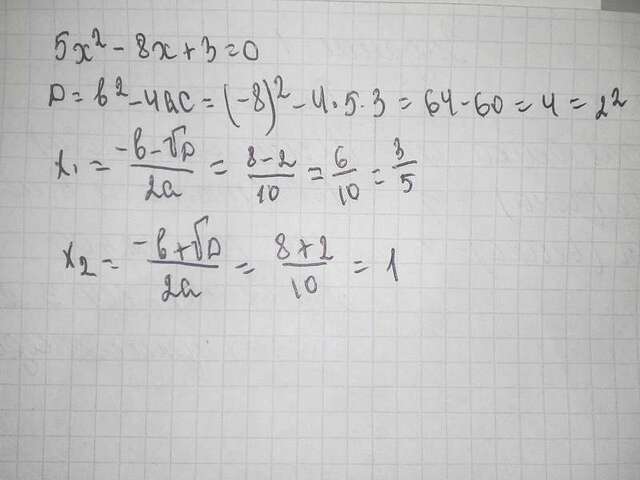 5x² - 8x + 3 = 0
D = b² - 4ac = (-8)² - 4·5·3 = 64 - 60 = 4 = 2²
x₁ = (-b - √D)/(2a) = (8 - 2)/10 = 6/10 = 3/5
x₂ = (-b + √D)/(2a) = (8 + 2)/10 = 1